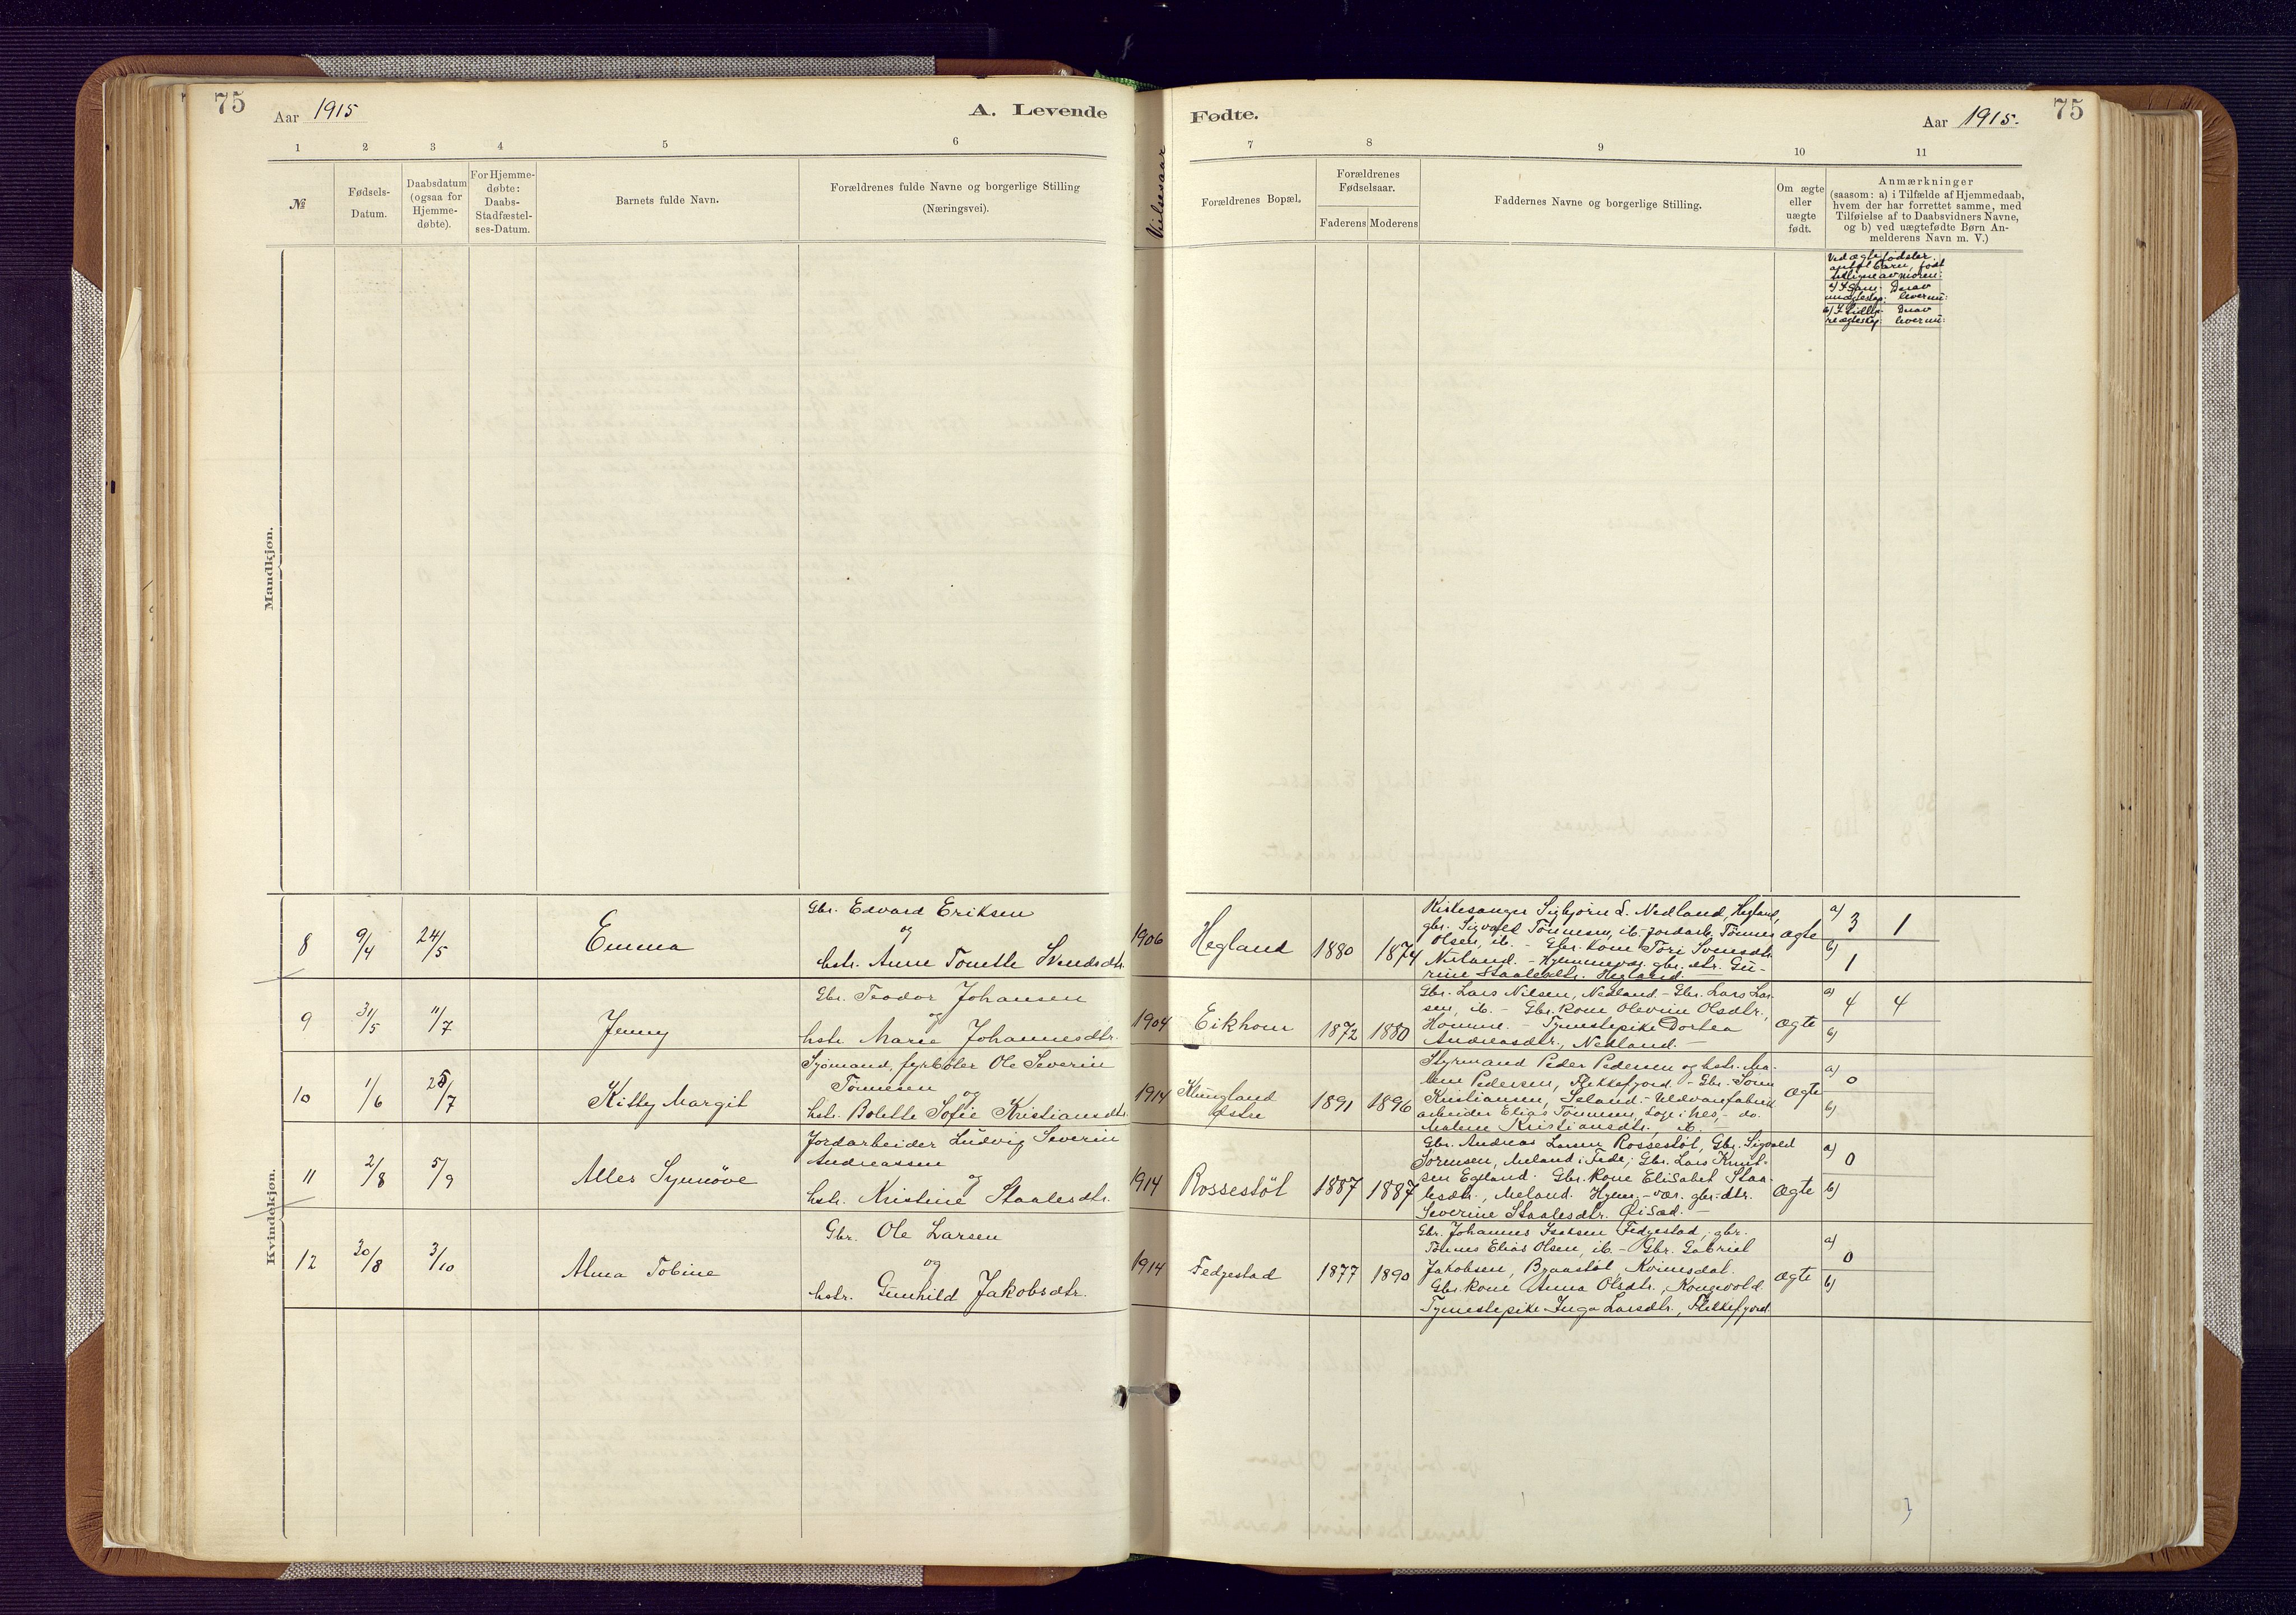 75
Aar 1915
A. Levende
1 2 3 4 5 6
№
Fødsels-
Datum.
Daabsdatum
(ogsaa for
Hjemme-
døbte).
For Hjemme-
døbte:
Daabs-
Stadfæstel-
ses-Datum.
Barnets fulde Navn.
Forældrenes fulde Navne og borgerlige Stilling
(Næringsvei).
Mandkjøn.
Kvindekjøn.
8 9/4 24/5 Emma
Gbr. Edvard Eriksen
og
hstr. Anne Tonette Svendsdtr.
9 31/5 11/7 Jenny
Gbr. Teodor Johansen
og
hstr. Marie Johannesdtr.
10 1/6 25/7 Kitty Margit
Sjømand, fyrbøter Ole Severin
Tønnesen
og
hstr. Bolette Sofie Kristiansdtr.
11 2/8 5/9 Alles Synnøve
Jordarbeider Ludvig Severin
Andreassen
og
hstr. Kristine Staalesdtr.
12 30/8 3/10 Alma Tobine
Gbr. Ole Larsen
og
hstr. Gunhild Jakobsdtr.
Vielsesaar
Fødte.
Aar 1915.
75
7 8 9 10 11
Forældrenes Bopæl.
Forældrenes
Fødselsaar.
Faderens Moderens
Faddernes Navne og borgerlige Stilling.
Om ægte
eller
uægte
født.
Anmærkninger
(saasom: a) i Tilfælde af Hjemmedaab,
hvem der har forrettet samme, med
Tilføielse af to Daabsvidners Navne,
og b) ved uægtefødte Børn An-
melderens Navn m. V.)
Ved ægte fødsler
antal barn, født
tidligere av moren:
Derav
lever nu:
Derav
lever nu:
1906 Hegland 1880 1874
Kirkesanger Sigbjørn S. Nedland, Hegland,
gbr. Sigvald Tønnesen, ib. jordarb. Tønnes
Olsen, ib. - Gbr. kone Tori Svensdtr.
Nuland. - Hjemmevær. gbr. dtr. Gu-
rine Staalesdtr. Hegland.
ægte
a) 3 1
b) 1
1904 Eikhom 1872 1880
Gbr. Lars Nilsen, Nedland. - Gbr. Lars Lar-
sen, ib. - Gbr. kone Olevine Olsdtr.,
Homme. - Tjenestepike Dortea
Andreasdtr., Nedland. -
ægte
a) 4 4
b)
1914 Klungland
østre 1891 1896
Styrmand Peder Pedersen og hstr. Ma-
Pedersen, Flekkefjord. - Gbr.
Kristiansen, Seland. - Uldvarefabrik
arbeider Elias Tønnesen, Loge i Nes, - do.
Malene Kristiansdtr., ib. -
ægte
a) 0
b)
1914 Rossestøl 1887 1887
Gbr. Andreas Larsen Rossestøl, Gbr. Sigvald
Sørensen, Meland i Fede; Gbr. Lars Knut-
sen Egeland. Gbr. kone Elisabet Staa-
lesdtr., Meland. Hjem.-vær. gbr.-dtr.
Severine Staalesdtr. Øisæd. -
Ægte
a) 0
b)
1914 Fedgestad 1877 1890
Gbr. Johannes Isaksen Fedgestad, gbr.
Tønnes Elias Olsen, ib. - Gbr. Gabriel
Jakobsen, Braastøl Kvinesdal.
Gbr. kone Anna Olsdtr., Kongevold.
Tjenestepike Inga Larsdtr., Flekkefjord.
ægte
a) 0
b)